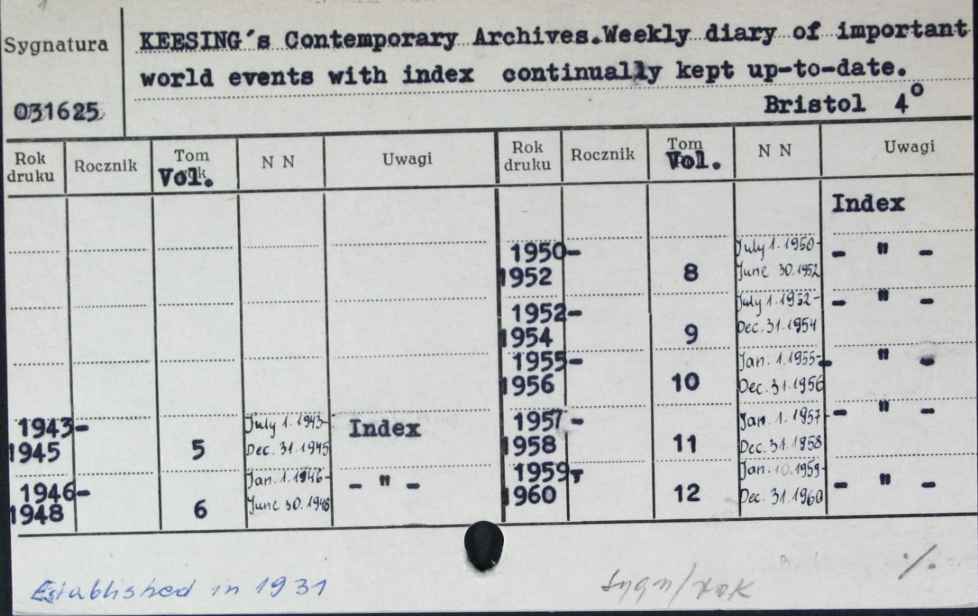 Sygnatura
KEESING's Contemporary Archives.Weekly diary of important
world events with index continually kept up-to-date.
031625
Bristol 4°
Rok druku Rocznik Tom Vol. N N Uwagi Rok druku Rocznik Tom Vol. N N Uwagi
Index
1950-1952 8 July 1. 1950- June 30. 1952 - " -
1952-1954 9 July 1. 1952- Dec. 31. 1954 - " -
1955-1956 10 Jan. 1. 1955- Dec. 31. 1956 - " -
1943-1945 5 July 1. 1943- Dec. 31. 1945 Index
1957-1958 11 Jan. 1. 1957- Dec. 31. 1958 - " -
1946-1948 6 Jan. 1. 1946- June 30. 1948 - " -
1959-1960 12 Jan. 1959- Dec. 31. 1960 - " -
Established in 1931
Sygn/rok
./.